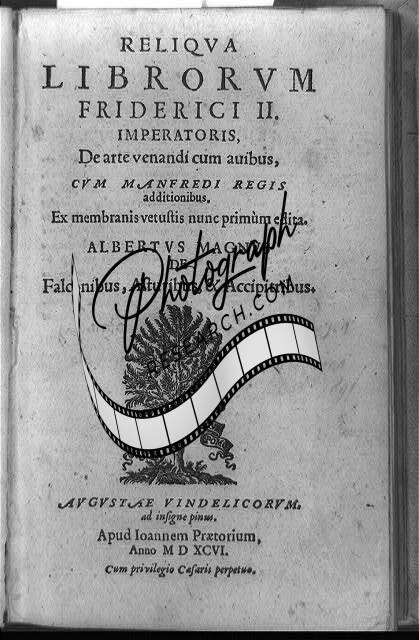 RELIQVA
LIBRORVM
FRIDERICI II.
IMPERATORIS,
De arte venandi cum auibus,
CVM MANFREDI REGIS
additionibus.
Ex membranis vetustis nunc primùm edita.
ALBERTVS MAGNVS
DE
Falconibus, Asturibus, & Accipitribus.
Photograph
RESEARCH.COM
AVGVSTAE VINDELICORVM.
ad insigne pinus.
Apud Ioannem Prætorium,
Anno M D XCVI.
Cum privilegio Cæsaris perpetuo.